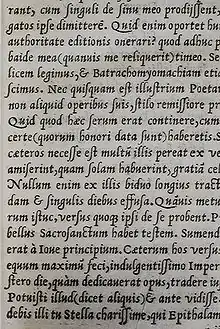 rant, cum singuli de sinu meo prodissent,
gatos ipse dimitterē. Quid enim oportet hu
authoritate editionis onerari? quod adhuc p
baide mea (quanuis me reliquerit) timeo. Se
licem legimus, & Batrachomyomachiam eti
scimus. Nec quisquam est illustrium Poetar
non aliquid operibus suis, stilo remissiore p
Quid quod hæc serum erat continere, cum
certe (quorum honori data sunt) haberetis. S
cæteros necesse est multū illis pereat ex ve
amiserint, quam solam habuerint, gratiā cel
Nullum enim ex illis biduo longius tract
dam & singulis diebus effusa. Quāuis metu
rum istuc, versus quoq; ipsi de se probent. P
bellus Sacrosanctum habet testem. Sumend
erat à Ioue principium. Cæterum hos versus
equum maximū feci, indulgentissimo Imper
stero die, quàm dedicauerat opus, tradere iu
Potuisti illud (dicet aliquis) & ante vidisse
debis illi tu Stella charissime, qui Epithalam